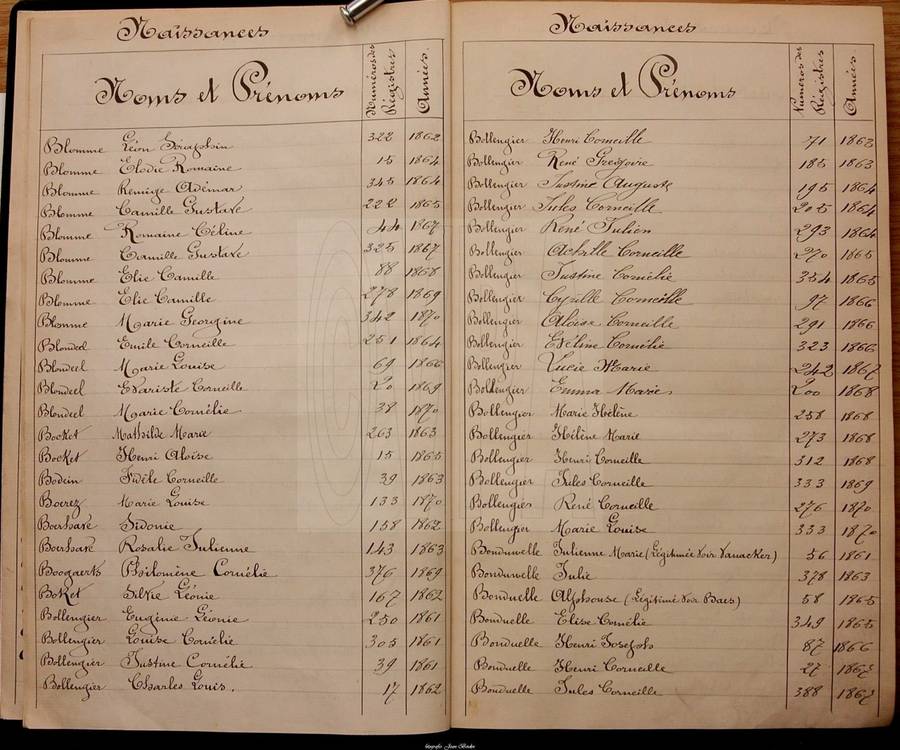 Naissances
Noms et Prénoms Numéros des Registres Années
Blomme Léon Séraphin 322 1862
Blomme Elodie Romaine 15 1864
Blomme Remige Adémar 345 1864
Blomme Camille Gustave 222 1865
Blomme Romaine Céline 44 1867
Blomme Camille Gustave 325 1867
Blomme Elie Camille 88 1868
Blomme Elie Camille 278 1869
Blomme Marie Georgine 342 1870
Blondeel Emile Corneille 251 1864
Blondeel Marie Louise 69 1866
Blondeel Evariste Corneille 20 1869
Blondeel Marie Cornélie 38 1870
Bocket Mathilde Marie 263 1863
Bocket Henri Aloïse 15 1865
Bodein Fidèle Corneille 39 1863
Boerez Marie Louise 133 1870
Boersave Sidonie 158 1862
Boersave Rosalie Julienne 143 1863
Boogaerts Philomène Cornélie 376 1869
Boket Silvie Léonie 167 1862
Bollengier Eugénie Léonie 250 1861
Bollengier Louise Cornélie 305 1861
Bollengier Justine Cornélie 39 1861
Bollengier Charles Louis. 17 1862
Naissances
Noms et Prénoms Numéros des Registres Années
Bollengier Henri Corneille 71 1863
Bollengier René Grégoire 185 1863
Bollengier Justine Auguste 195 1864
Bollengier Jules Corneille 205 1864
Bollengier René Julien 293 1864
Bollengier Achille Corneille 270 1865
Bollengier Justine Cornélie 354 1865
Bollengier Cyrille Corneille 97 1866
Bollengier Aloïse Corneille 291 1866
Bollengier Eveline Cornélie 323 1866
Bollengier Lucie Marie 242 1867
Bollengier Emma Marie 200 1868
Bollengier Marie Hélène 258 1868
Bollengier Hélène Marie 273 1868
Bollengier Henri Corneille 312 1868
Bollengier Jules Corneille 333 1869
Bollengier René Corneille 276 1870
Bollengier Marie Louise 333 1870
Bonduwelle Julienne Marie (Légitimée Voir Vanacker) 56 1861
Bonduwelle Julie 378 1863
Bonduelle Alphonse (Légitimé Voir Baes) 58 1865
Bonduelle Elise Cornélie 349 1865
Bonduelle Henri Joseph 87 1866
Bonduelle Henri Corneille 27 1867
Bonduelle Jules Corneille 388 1867